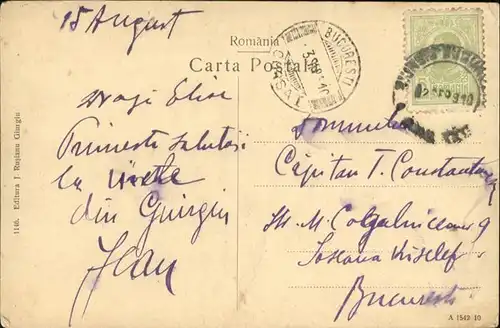 15 August
România
Carta Postală
BUCURESTI
Dragi Elise
Primeste salutări
la
din Giurgiu
Jean
Domnului
Căpitan T. Constantinescu
Str. M. Cogalniceanu 9
Soseaua Kiselef
Bucuresti
1146. Editura J Roşianu Giurgiu
A 1542 10